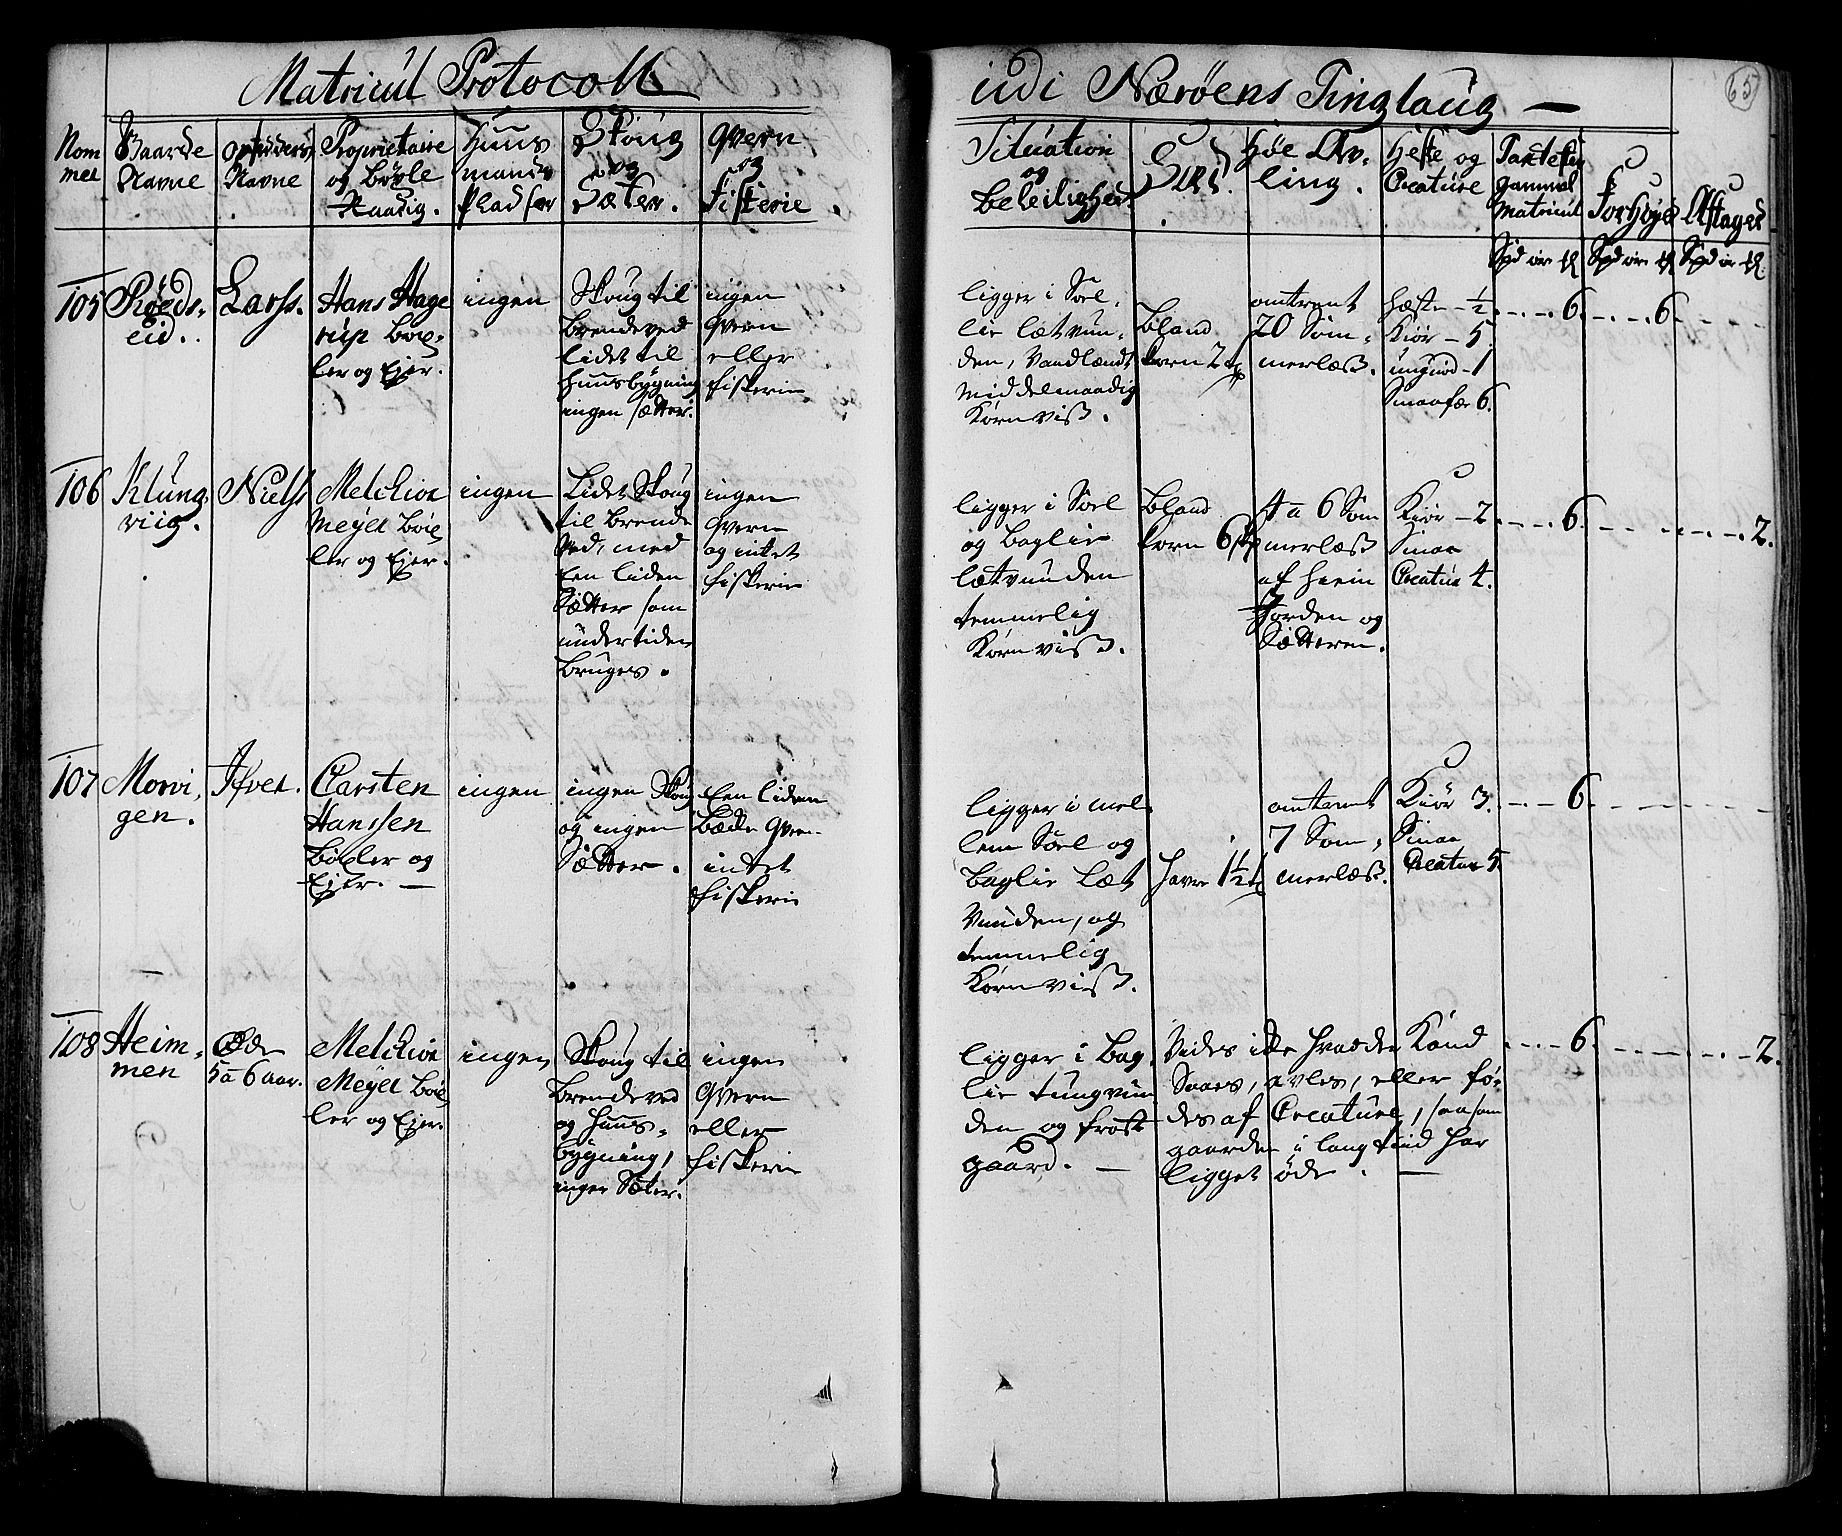 Matricul Protocoll
udi Nærøens Tinglaug —
65
Nom
mer
Gaarde
Navne
Opsidderes
Navne
Proprietaire
og Bøxle
Raadig.
Huus
mands
pladser
Skoug
og
Sæter.
Qvern
og
Fiskerie
Situation
og
Beleilighed
Sæd.
Høe Av-
ling.
Heste og
Creature
Taxt efter
gammel
Matricul
Forhøyed
Aftaged
Spd ør ℔
Spd ør ℔
Spd ør ℔
105
Røeds-
eid.
Larss.
Hans Hage
rup Bøx-
ler og Ejer.
ingen
Skoug til
brendeved
lidet til
huusbygning
ingen sætter.
ingen
Qvern
eller
fiskerie
ligger i Soel-
lie lætvun-
den, Vandlændt
middelmaadig
Kornviss.
bland
korn 2 t
omtrent
20 Som-
merlæss.
Hæste - ½
Kiør - 5
ungnød - 1
Smaafæ 6.
6.
6
106
Klung
viig.
Niels
Melchior
Meyer Bøx
ler og Ejer.
ingen
Lidet Skoug
til brende
Ved, med
Een liden
Sætter som
undertiden
bruges.
ingen
Qvern
og intet
fiskerie
ligger i Soel
og Baglie
lætvunden
temmelig
Kornviss.
bland
korn 6
4 a 6 Som
merlæss
af heim
Jorden og
Sætteren.
Kiør - 2
Smaa
Creatur 4.
6
2.
107
Morvi-
gen.
Ifver.
Carsten
Hanssen
Bøxler og
Ejer. —
ingen
ingen Skoug
og ingen
Sætter.
Een liden
Bæcke Qvern
intet
fiskerie
ligger i mel
lem Soel og
Baglie Læt
Vunden, og
temmelig
Kornviss.
havre 1½ t
omtrent
7 Som-
merlæss.
Kiør 3.
Smaa
Creatur 5
6
108
Heim-
men
Øde
5 a 6 aar.
Melchior
Meyer Bøx
ler og Ejer.
ingen
Skoug til
brendeved
og huus-
bygning,
ingen Sæter.
ingen
Qvern
eller
fiskerie
ligger i Bag-
lie tungvun
den og frost
gaard. —
Vides icke hvad der Kand
Saaes, avles, eller fø-
des af Creature, saasom
gaarden i lang tiid har
ligget øde. —
6
2.